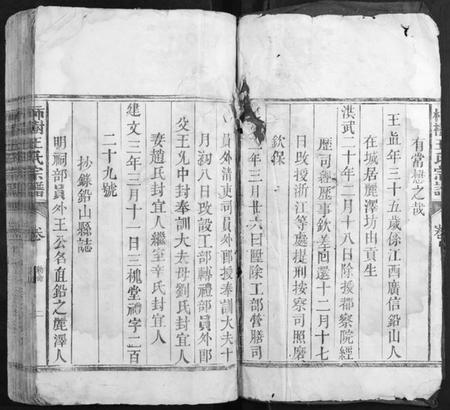 有當樾之哉
王直年三十五歲係江西廣信鉛山人
在城居麗澤坊由貢生
洪武二十年二月十八日除授都察院經
歷司 歷事欽差回還十二月十七
日改授浙江等處提刑按察司照磨
欽保
年三月廿六日歷除工部營膳司
員外清吏司員外郎授奉訓大夫十
月初八日改設工部轉禮部員外郎
父王九中封奉訓大夫母劉氏封宜人
妻趙氏封宜人繼室辛氏封宜人
建文三年三月十一日三槐堂禮字二百
二十九號
抄錄鉛山縣誌
明祠部員外王公名直鉛之麗澤人
王氏宗譜
卷